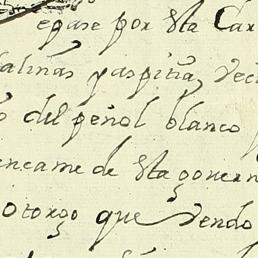 epase por esta Car
salinas y aspitia, veci
del peñol blanco
encame de esta govern
otorgo que vendo